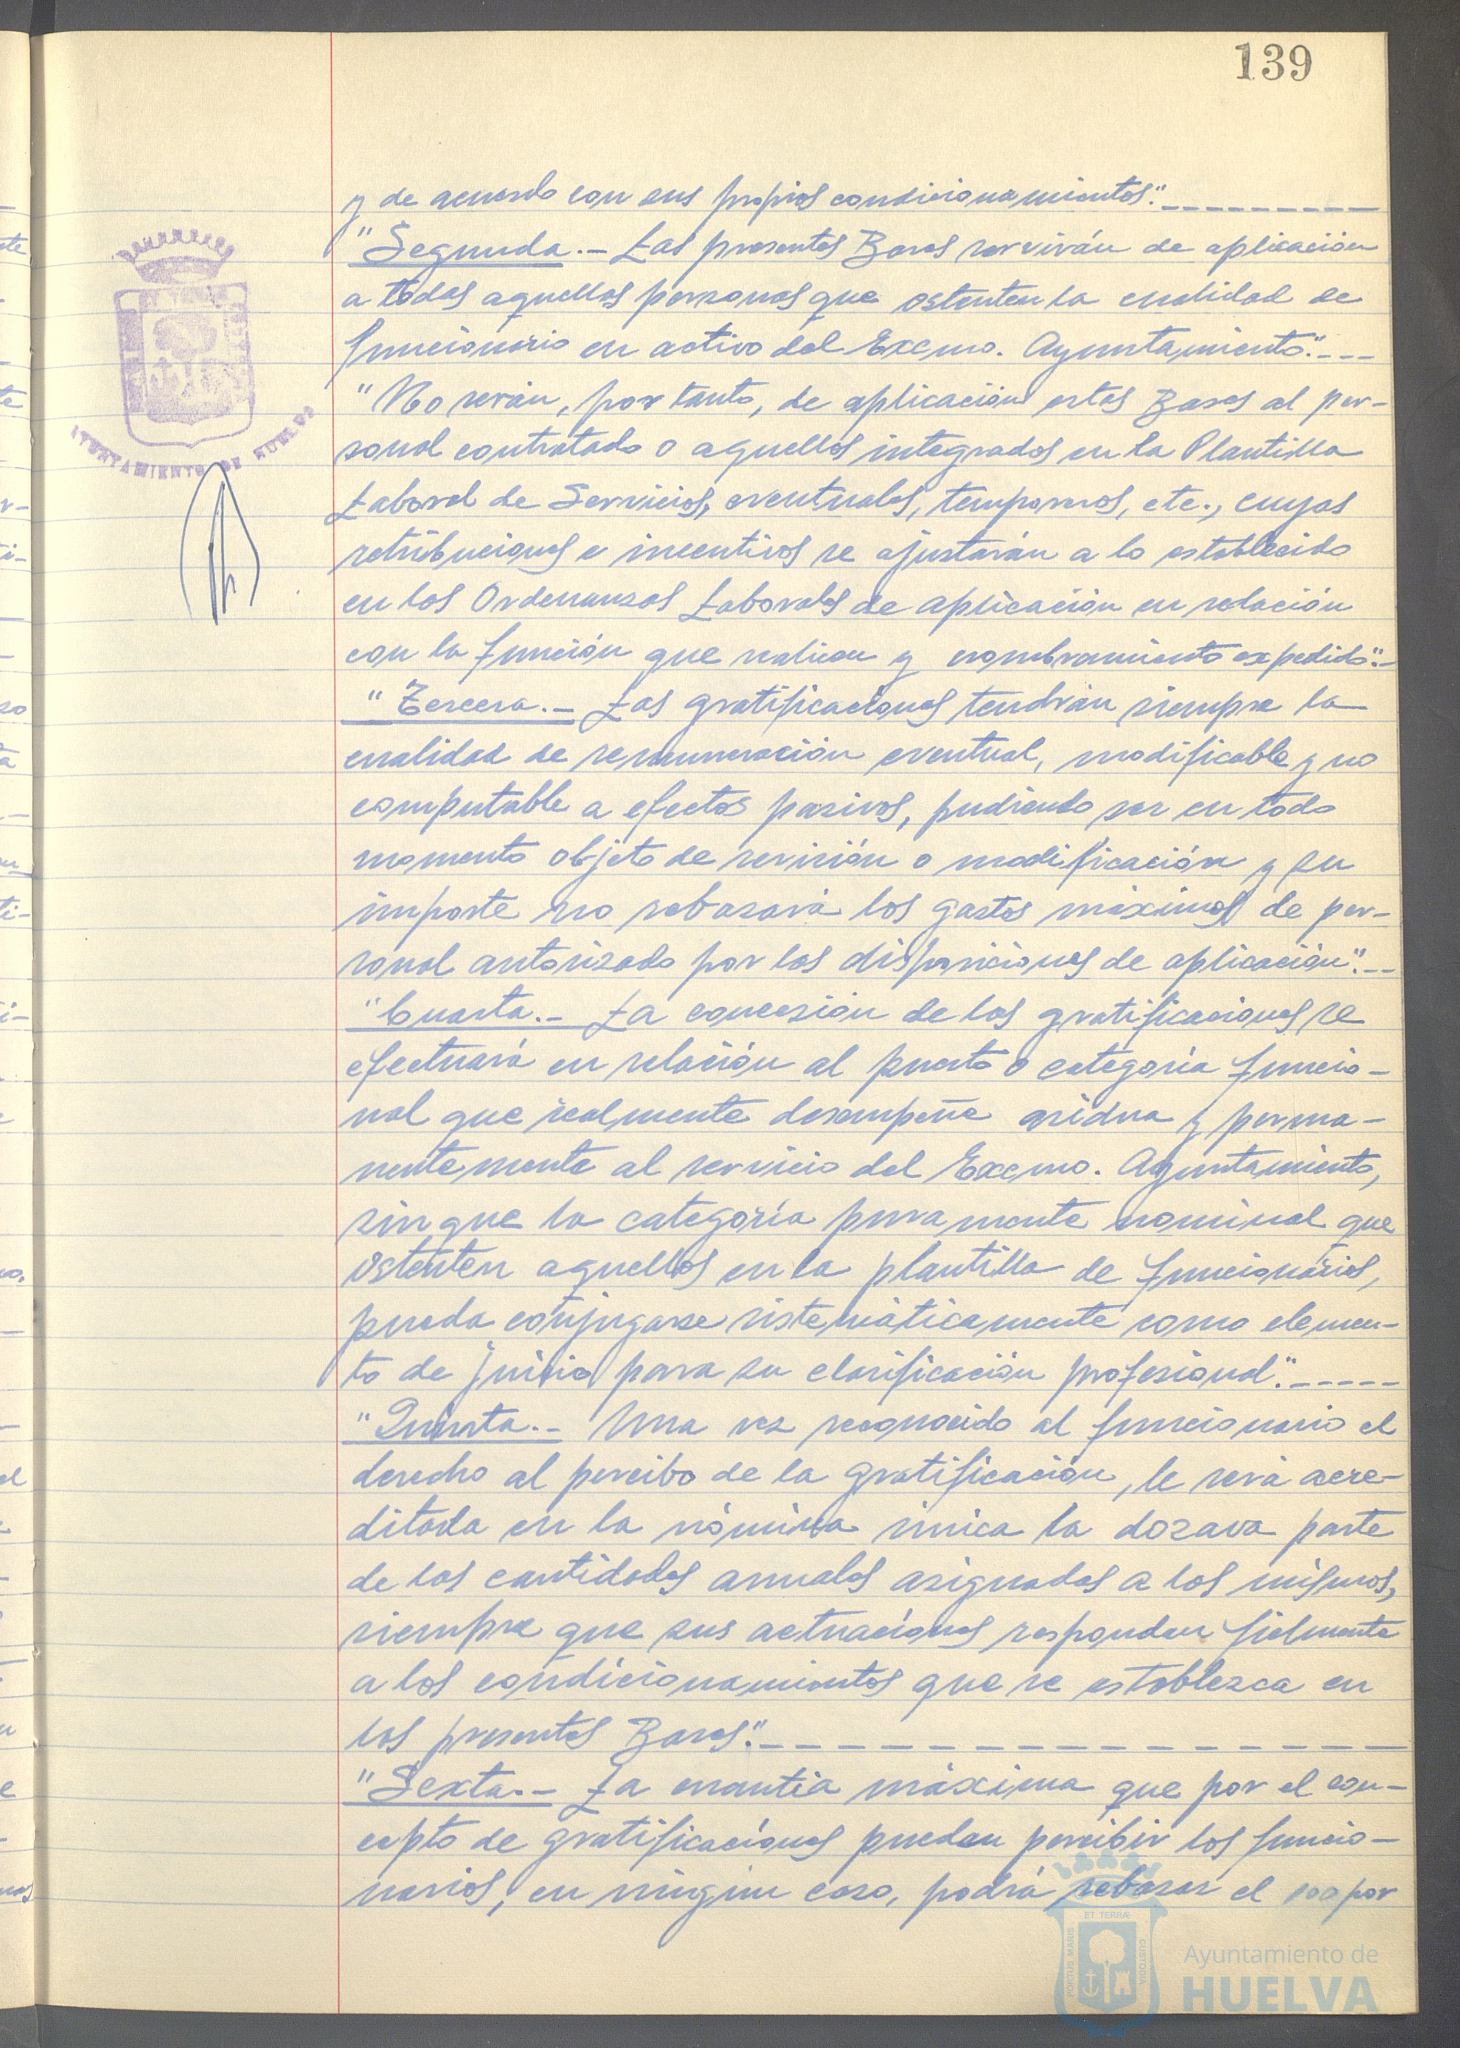 139
y de acuerdo con sus propios condicionamientos".
"Segunda.- Las presentes Bases servirán de aplicación
a todas aquellas personas que ostenten la cualidad de
funcionario en activo del Excmo. Ayuntamiento".
"No serán, por tanto, de aplicación estas Bases al per-
sonal contratado o aquellos integrados en la Plantilla
Laboral de Servicios, eventuales, temporeros, etc., cuyas
retribuciones e incentivos se ajustarán a lo establecido
en las Ordenanzas Laborales de aplicación en relación
con la función que realicen y nombramiento expedido".
"Tercera.- Las gratificaciones tendrán siempre la
cualidad de remuneración eventual, modificable y no
computable a efectos pasivos, pudiendo ser en todo
momento objeto de revisión o modificación y su
importe no rebasará los gastos máximos de per-
sonal autorizado por las disposiciones de aplicación".
"Cuarta.- La concesión de las gratificaciones se
efectuará en relación al puesto o categoría funcio-
nal que realmente desempeñe asidua y perma-
nentemente al servicio del Excmo. Ayuntamiento,
sin que la categoría puramente nominal que
ostenten aquellos en la plantilla de funcionarios,
pueda conjugarse sistemáticamente como elemen-
to de juicio para su clasificación profesional".
"Quinta.- Una vez reconocido al funcionario el
derecho al percibo de la gratificación, le será acre-
ditada en la nómina única la dozava parte
de las cantidades anuales asignadas a los mismos,
siempre que sus actuaciones respondan fielmente
a los condicionamientos que se establezca en
las presentes Bases".
"Sexta.- La cuantía máxima que por el con-
cepto de gratificaciones puedan percibir los funcio-
narios, en ningún caso, podrá rebasar el 100 por
ET TERRAE
AYUNTAMIENTO DE HUELVA
PORTUS MARIS
ET TERRÆ
CUSTODIA
Ayuntamiento de
HUELVA